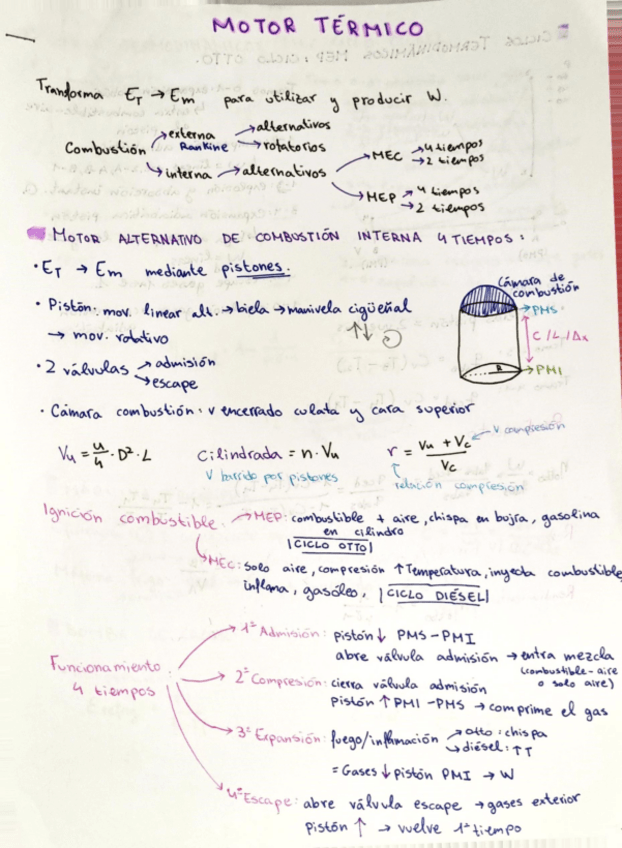 MOTOR TÉRMICO
Transforma ET → Em para utilizar y producir W.
Combustión → externa Rankine → alternativos
→ rotatorios
→ interna → alternativos → MEC → 4 tiempos
→ 2 tiempos
→ MEP → 4 tiempos
→ 2 tiempos
MOTOR ALTERNATIVO DE COMBUSTIÓN INTERNA 4 TIEMPOS:
· ET → Em mediante pistones.
· Pistón: mov. linear alt. → biela → manivela cigüeñal
→ mov. rotativo
· 2 válvulas → admisión
→ escape
Cámara de
combustión
PMS
C/L/Δx
R
PMI
· Cámara combustión: V encerrado culata y cara superior
Vu = π/4 · D² · L
Cilindrada = n · Vu
V barrido por pistones
r = (Vu + Vc)/Vc
V compresión
relación compresión
Ignición combustible: → MEP: combustible + aire, chispa en bujía, gasolina
en cilindro
|CICLO OTTO|
→ MEC: solo aire, compresión ↑ Temperatura, inyecta combustible,
inflama, gasóleo, |CICLO DIÉSEL|
Funcionamiento
4 tiempos
→ 1º Admisión: pistón ↓ PMS - PMI
abre válvula admisión → entra mezcla
(combustible-aire
o solo aire)
→ 2º Compresión: cierra válvula admisión
Pistón ↑ PMI - PMS → comprime el gas
→ 3º Expansión: fuego/inflamación → otto: chispa
→ diésel: ↑T
= Gases ↓ pistón PMI → W
→ 4º Escape: abre válvula escape → gases exterior
Pistón ↑ → vuelve 1º tiempo